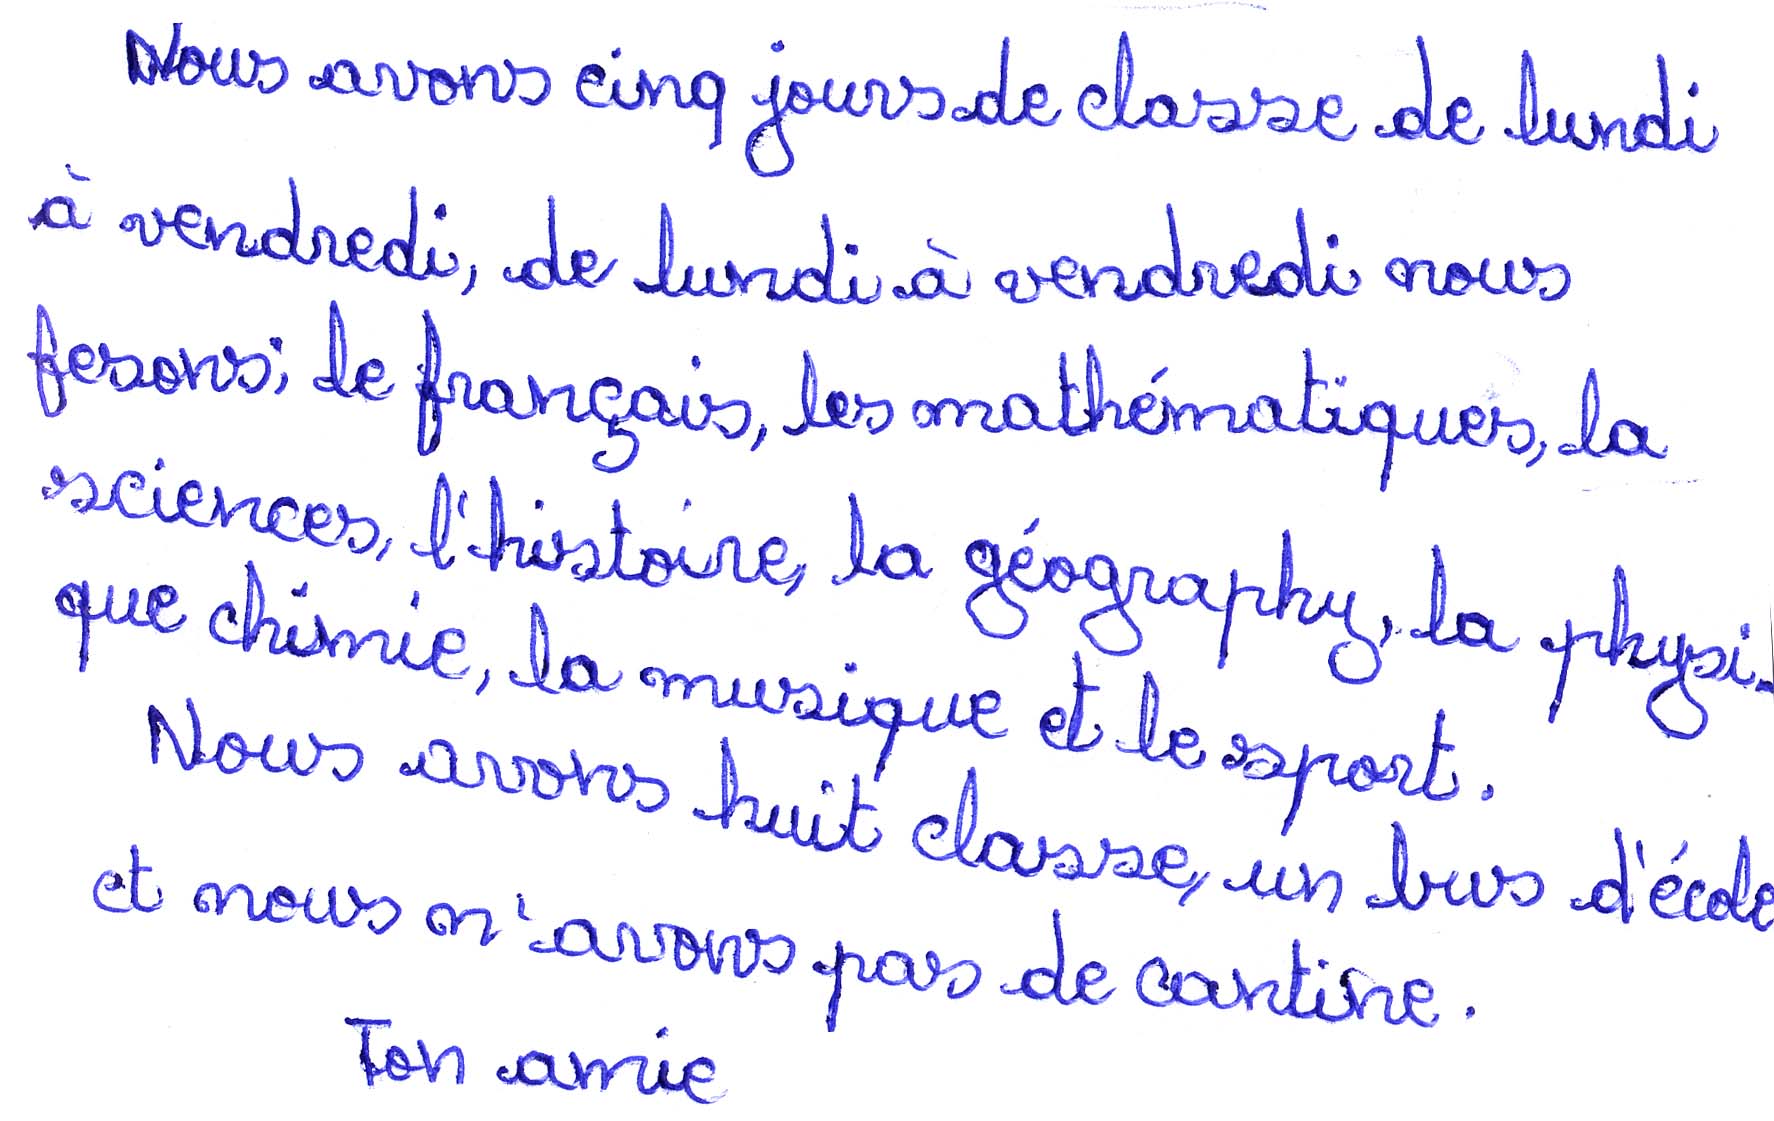 Nous avons cinq jours de classe de lundi
à vendredi, de lundi à vendredi nous
fesons; le français, les mathématiques, la
sciences, l'histoire, la géography, la physi-
que chimie, la musique et le sport.
Nous avons huit classe, un bus d'école
et nous n'avons pas de cantine.
Ton amie